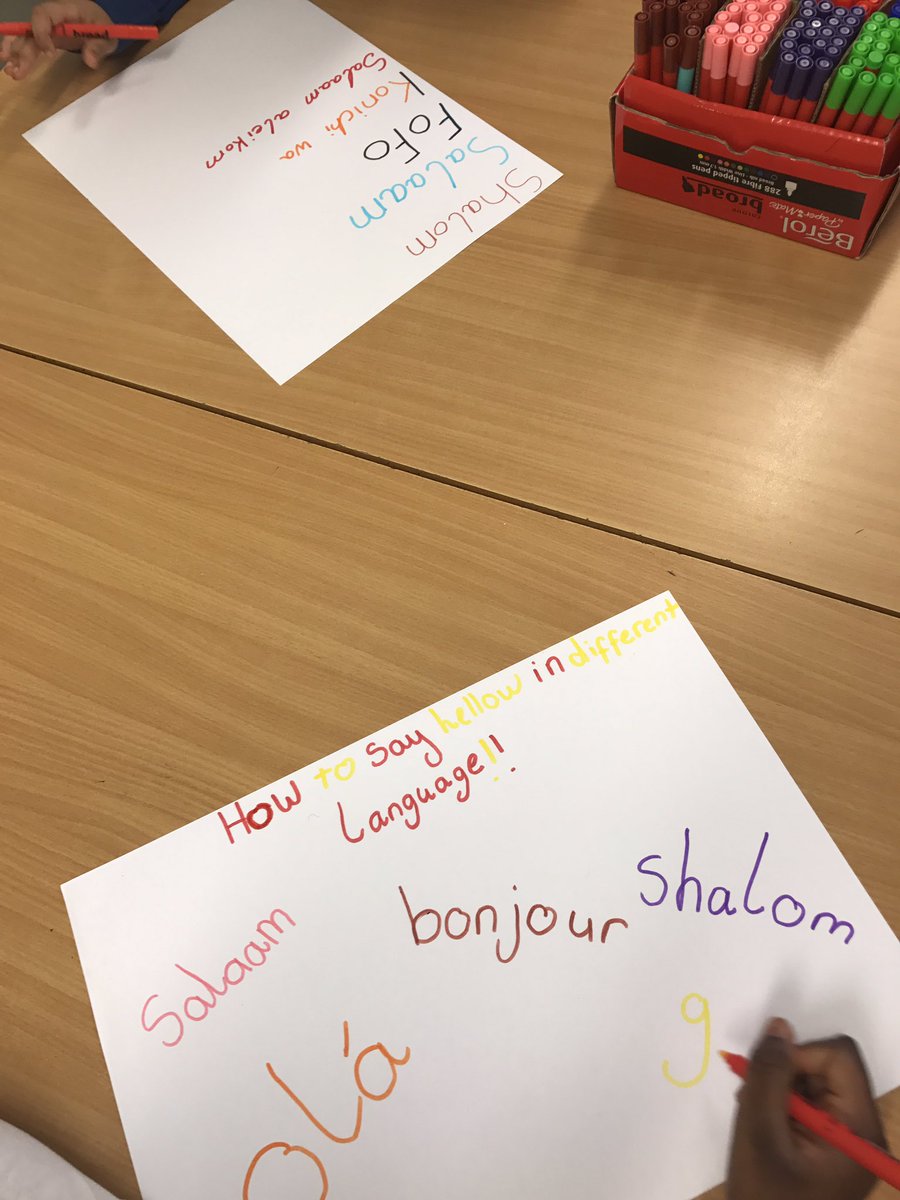 Salaam aleikom
Konichi wa
FoFo
Salaam
Shalom
Berol
PaperMate
colour broad
288 Fibre tipped pens
HOW to say hellow in different
Language!!
Salaam
bonjour
shalom
olá
g